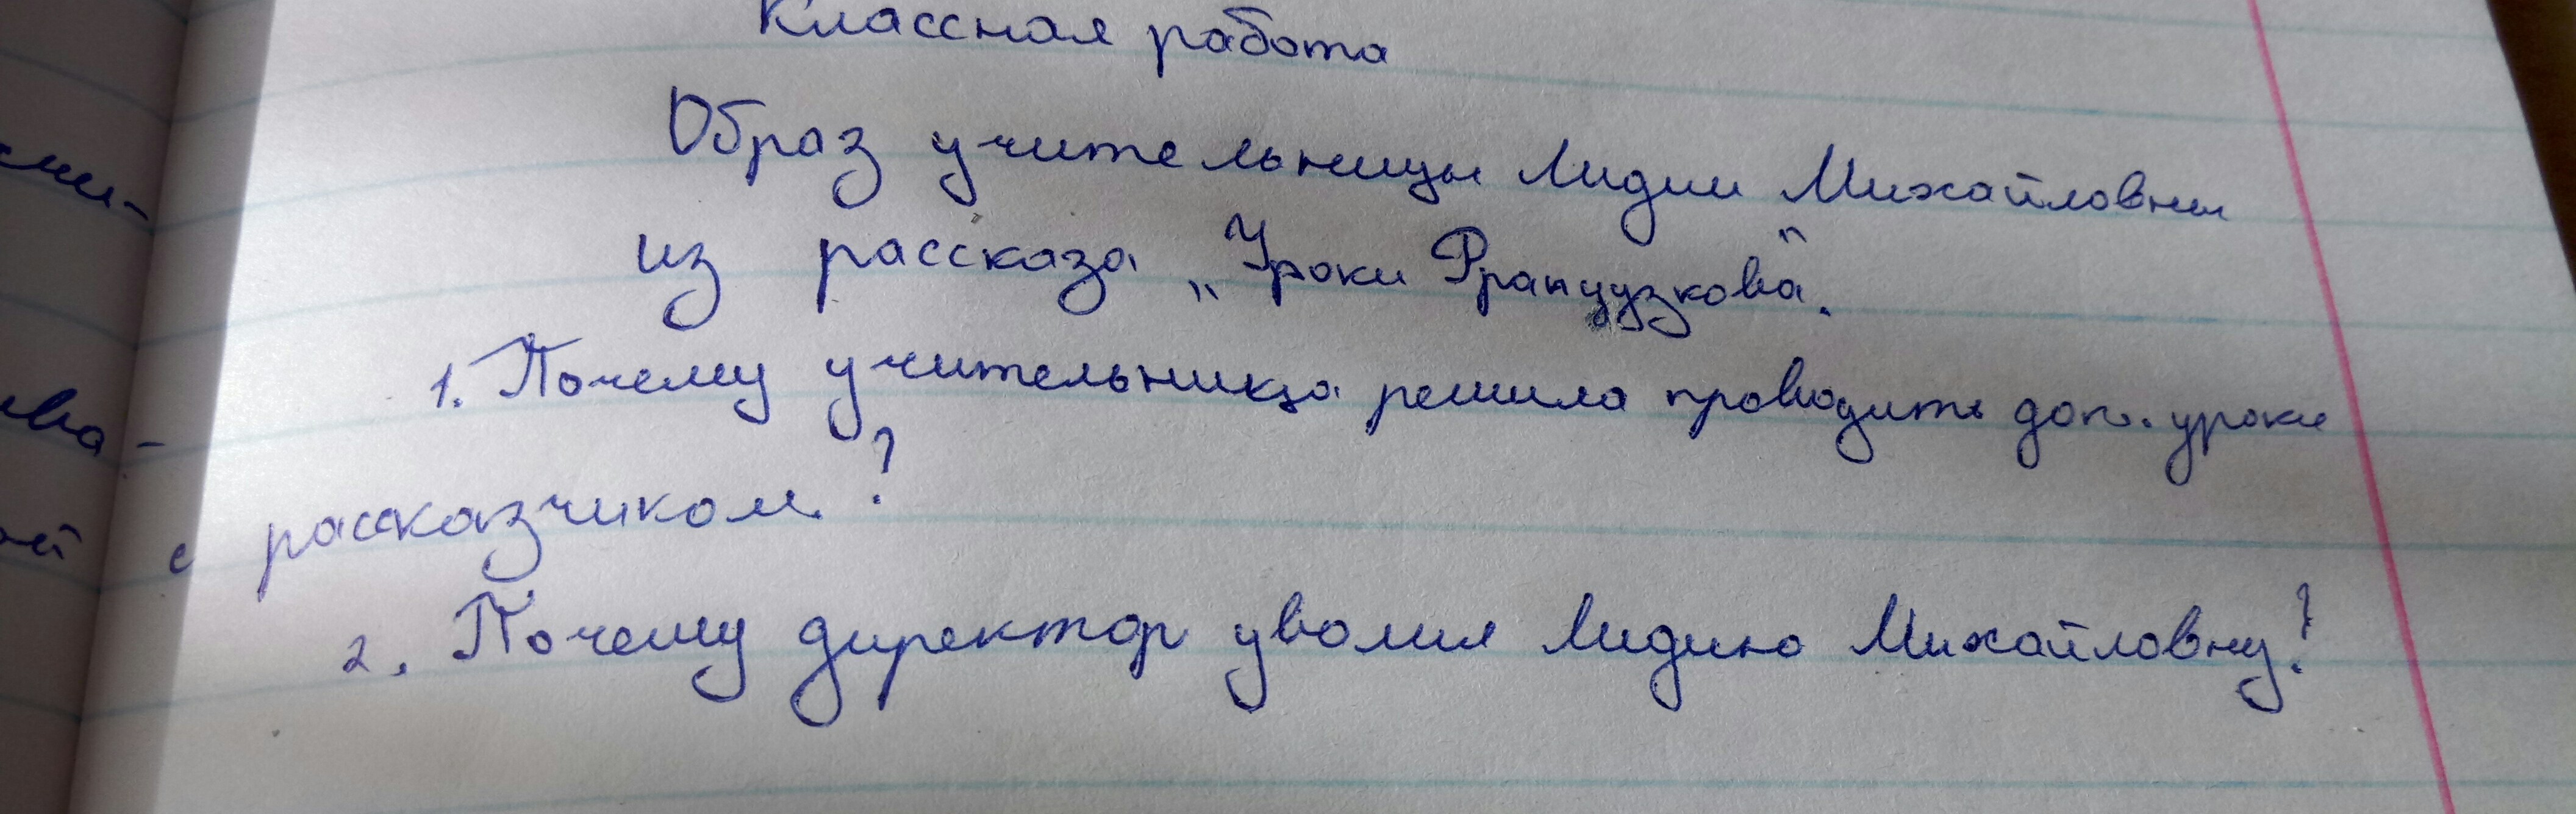 Классная работа
Образ учительницы Лидии Михайловны
из рассказа „Уроки Французкова".
1. Почему учительница решила проводить доп. уроки
с рассказчиком?
2. Почему директор уволил Лидию Михайловну?